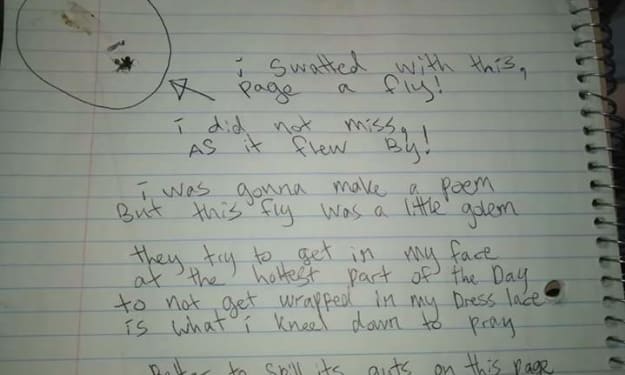 i swatted with this,
page a fly!
i did not miss,
AS it flew By!
i was gonna make a poem
But this fly was a little golem
they try to get in my face
at the hottest part of the Day
to not get wrapped in my Dress lace
is what i kneel down to pray
Better to spill its guts on this page